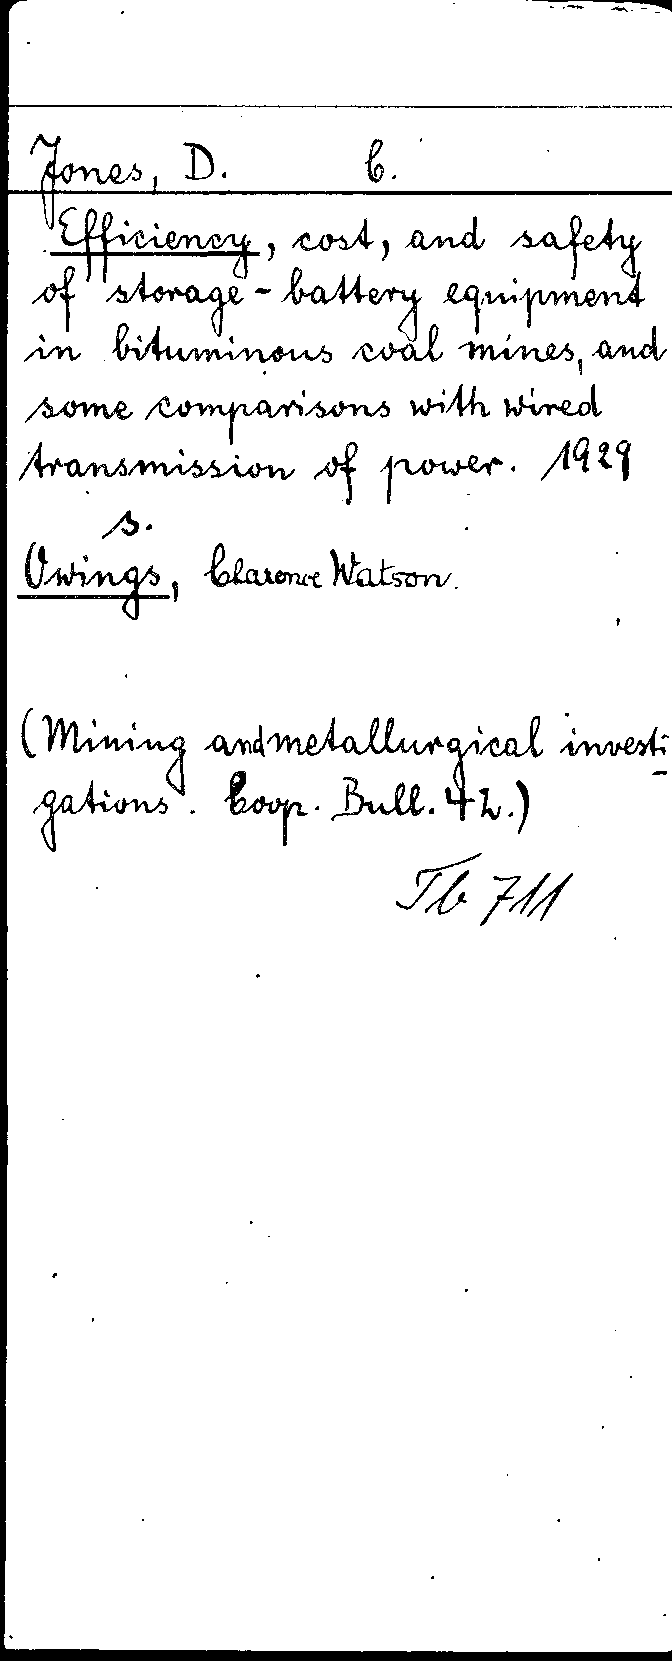 Jones, D. C.
Efficiency, cost, and safety
of storage-battery equipment
in bituminous coal mines, and
some comparisons with wired
transmission of power. 1929
s.
Owings, Clarence Watson.
(Mining and metallurgical investi-
gations. Coop. Bull. 42.)
Tb 711